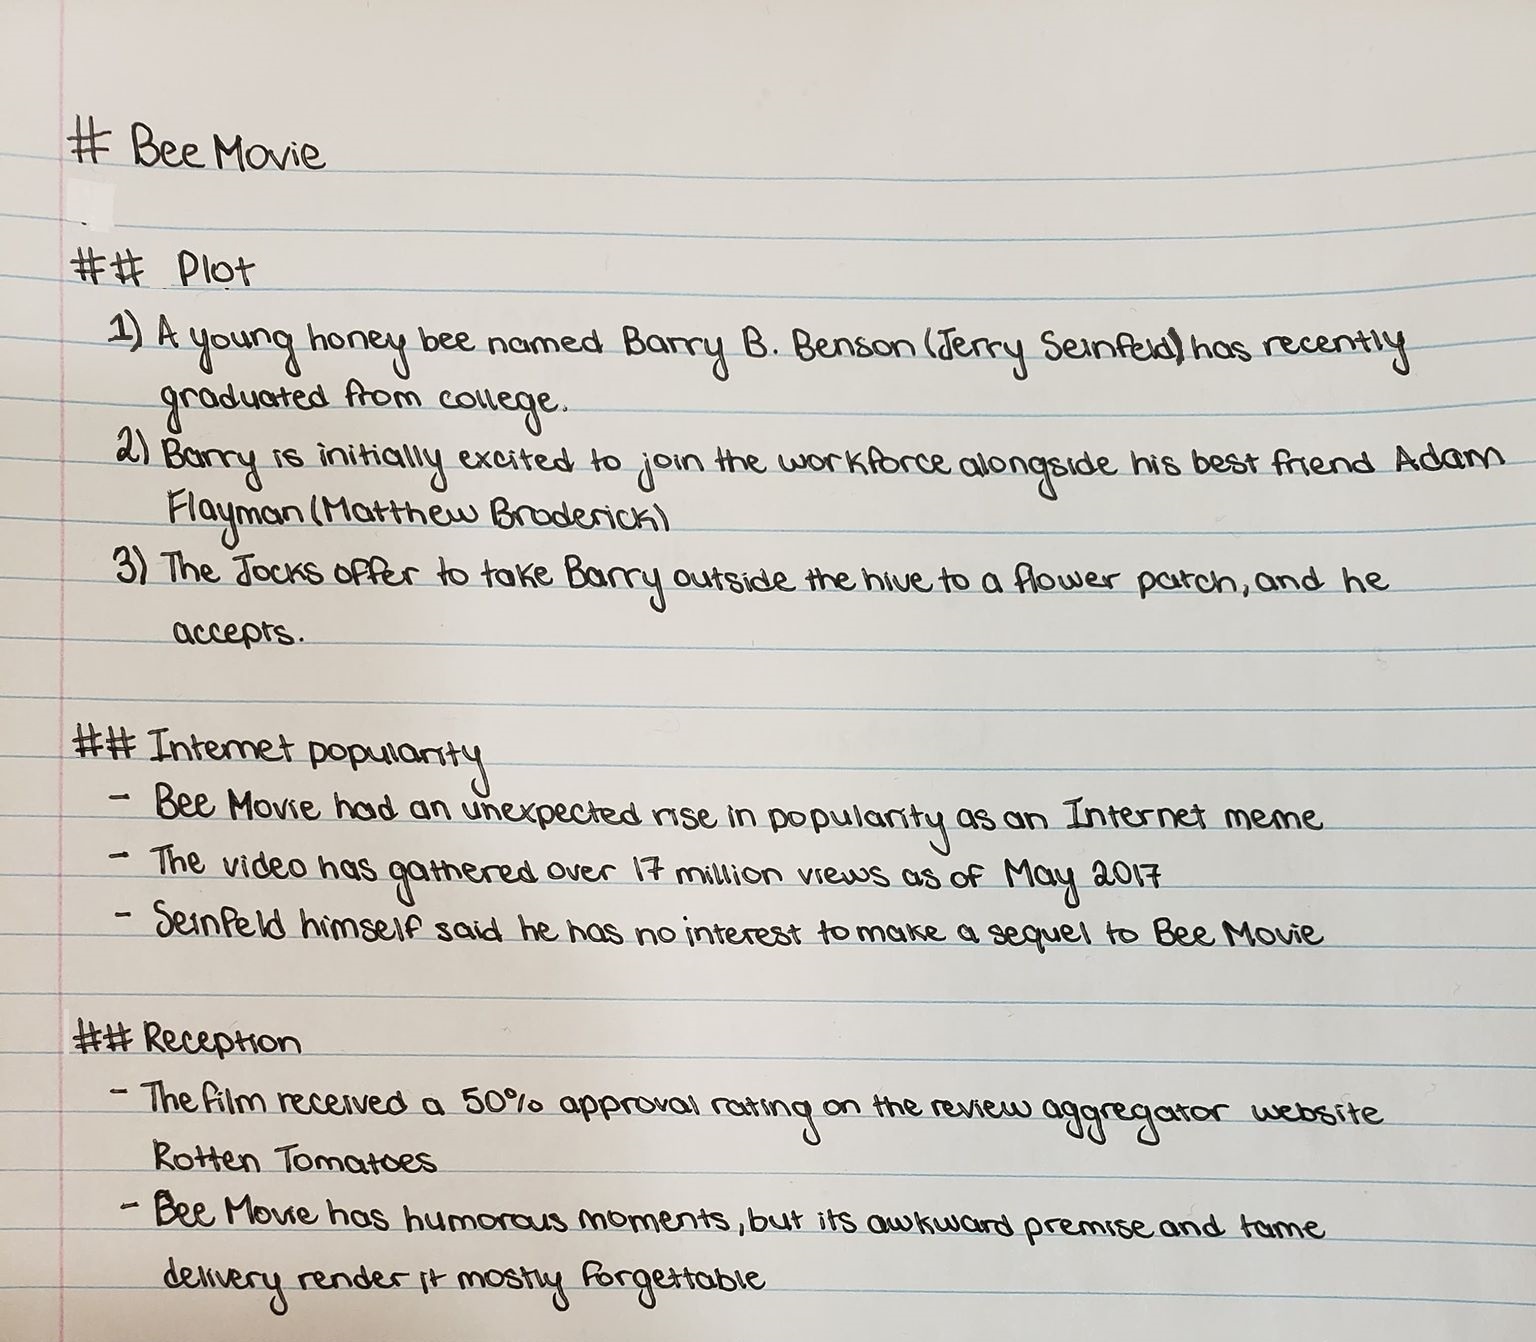 # Bee Movie
## Plot
1) A young honey bee named Barry B. Benson (Jerry Seinfeld) has recently
graduated from college.
2) Barry is initially excited to join the workforce alongside his best friend Adam
Flayman (Matthew Broderick)
3) The Jocks offer to take Barry outside the hive to a flower patch, and he
accepts.
## Internet popularity
- Bee Movie had an unexpected rise in popularity as an Internet meme
- The video has gathered over 17 million views as of May 2017
- Seinfeld himself said he has no interest to make a sequel to Bee Movie
## Reception
- The film received a 50% approval rating on the review aggregator website
Rotten Tomatoes
- Bee Movie has humorous moments, but its awkward premise and tame
delivery render it mostly forgettable